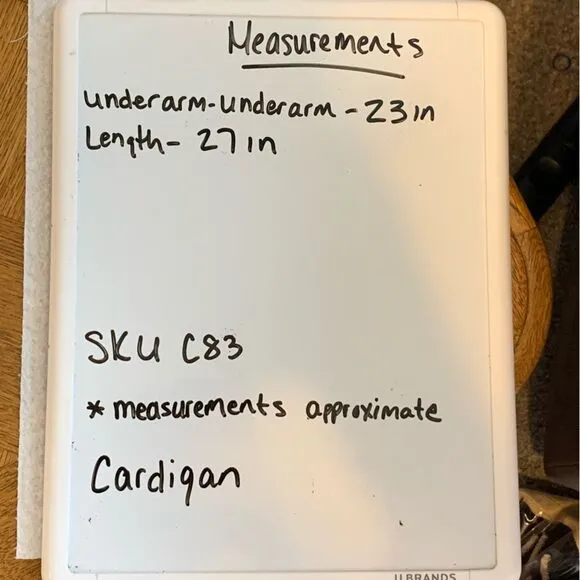 Measurements
underarm-underarm - 23in
Length- 27in
SKU C83
* measurements approximate
Cardigan
U BRANDS